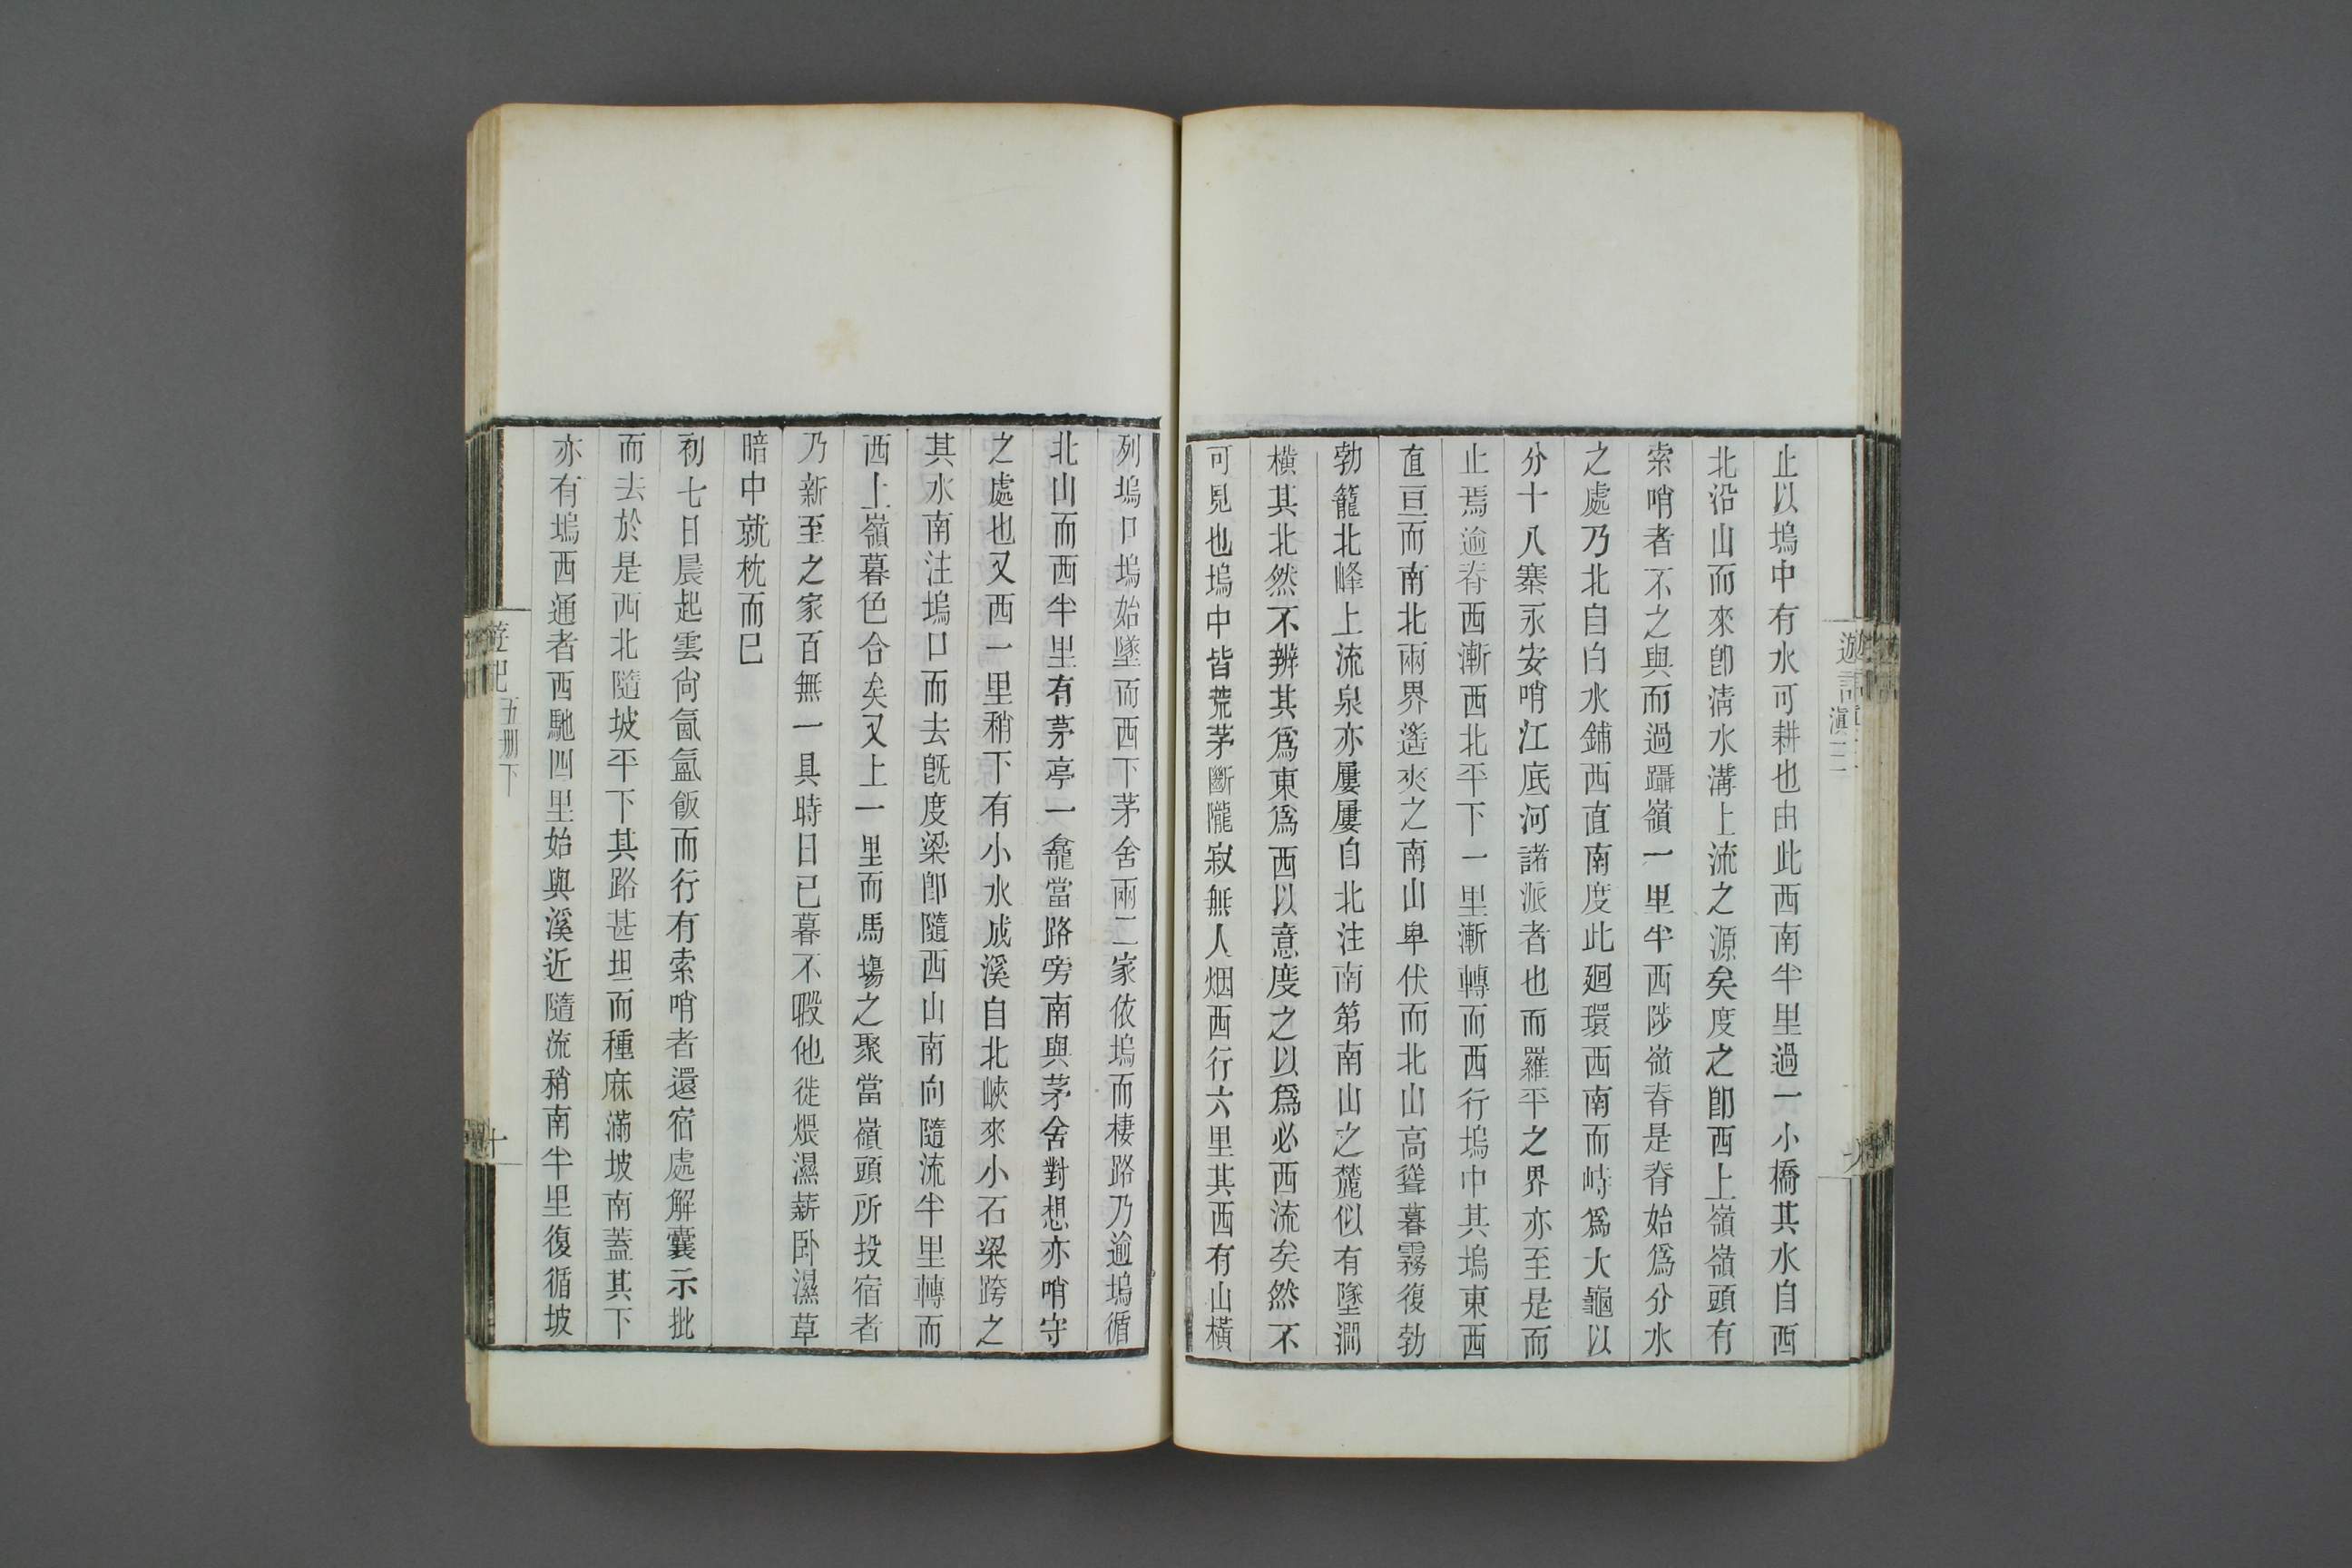 遊記
滇二
止以塢中有水可耕也由此西南半里過一小橋其水自西
北沿山而來卽清水溝上流之源矣度之卽西上嶺嶺頭有
索哨者不之與而過躡嶺一里半西陟嶺脊是脊始爲分水
之處乃北自白水鋪西直南度此廻環西南而峙爲大龜以
分十八寨永安哨江底河諸派者也而羅平之界亦至是而
止焉逾脊西漸西北平下一里漸轉而西行塢中其塢東西
直亘而南北兩界遙夾之南山卑伏而北山高聳暮霧復勃
勃籠北峰上流泉亦屢屢自北注南第南山之麓似有墜澗
橫其北然不辨其爲東爲西以意度之以爲必西流矣然不
可見也塢中皆荒茅斷隴寂無人烟西行六里其西有山橫
列塢口塢始墜而西下茅舍兩二家依塢而棲路乃逾塢循
北山而西半里有茅亭一龕當路旁南與茅舍對想亦哨守
之處也又西一里稍下有小水成溪自北峽來小石梁跨之
其水南注塢口而去旣度梁卽隨西山南向隨流半里轉而
西上嶺暮色合矣又上一里而馬塲之聚當嶺頭所投宿者
乃新至之家百無一具時日已暮不暇他徙煨濕薪卧濕草
暗中就枕而已
初七日晨起雲尙氤氳飯而行有索哨者還宿處解囊示批
而去於是西北隨坡平下其路甚坦而種麻滿坡南蓋其下
亦有塢西通者西馳四里始與溪近隨流稍南半里復循坡
遊記
五册下
十